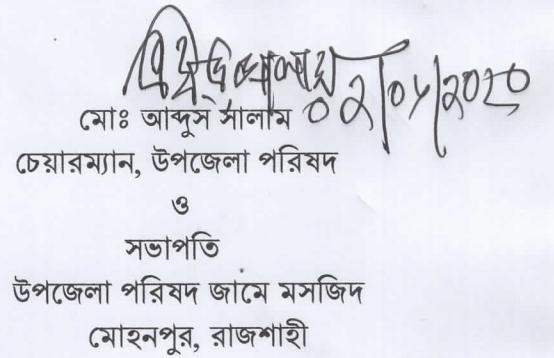 ০২/০৮/২০২০
মোঃ আব্দুস সালাম
চেয়ারম্যান, উপজেলা পরিষদ
ও
সভাপতি
উপজেলা পরিষদ জামে মসজিদ
মোহনপুর, রাজশাহী